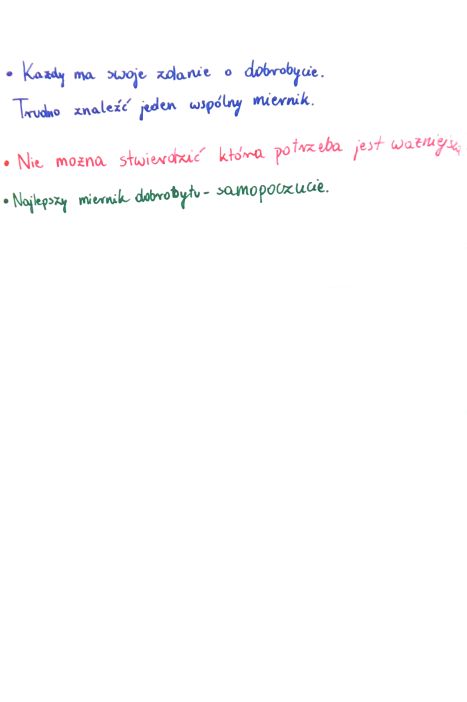 • Każdy ma swoje zdanie o dobrobycie.
Trudno znaleźć jeden wspólny miernik.
• Nie można stwierdzić która potrzeba jest ważniejsza
• Najlepszy miernik dobrobytu - samopoczucie.